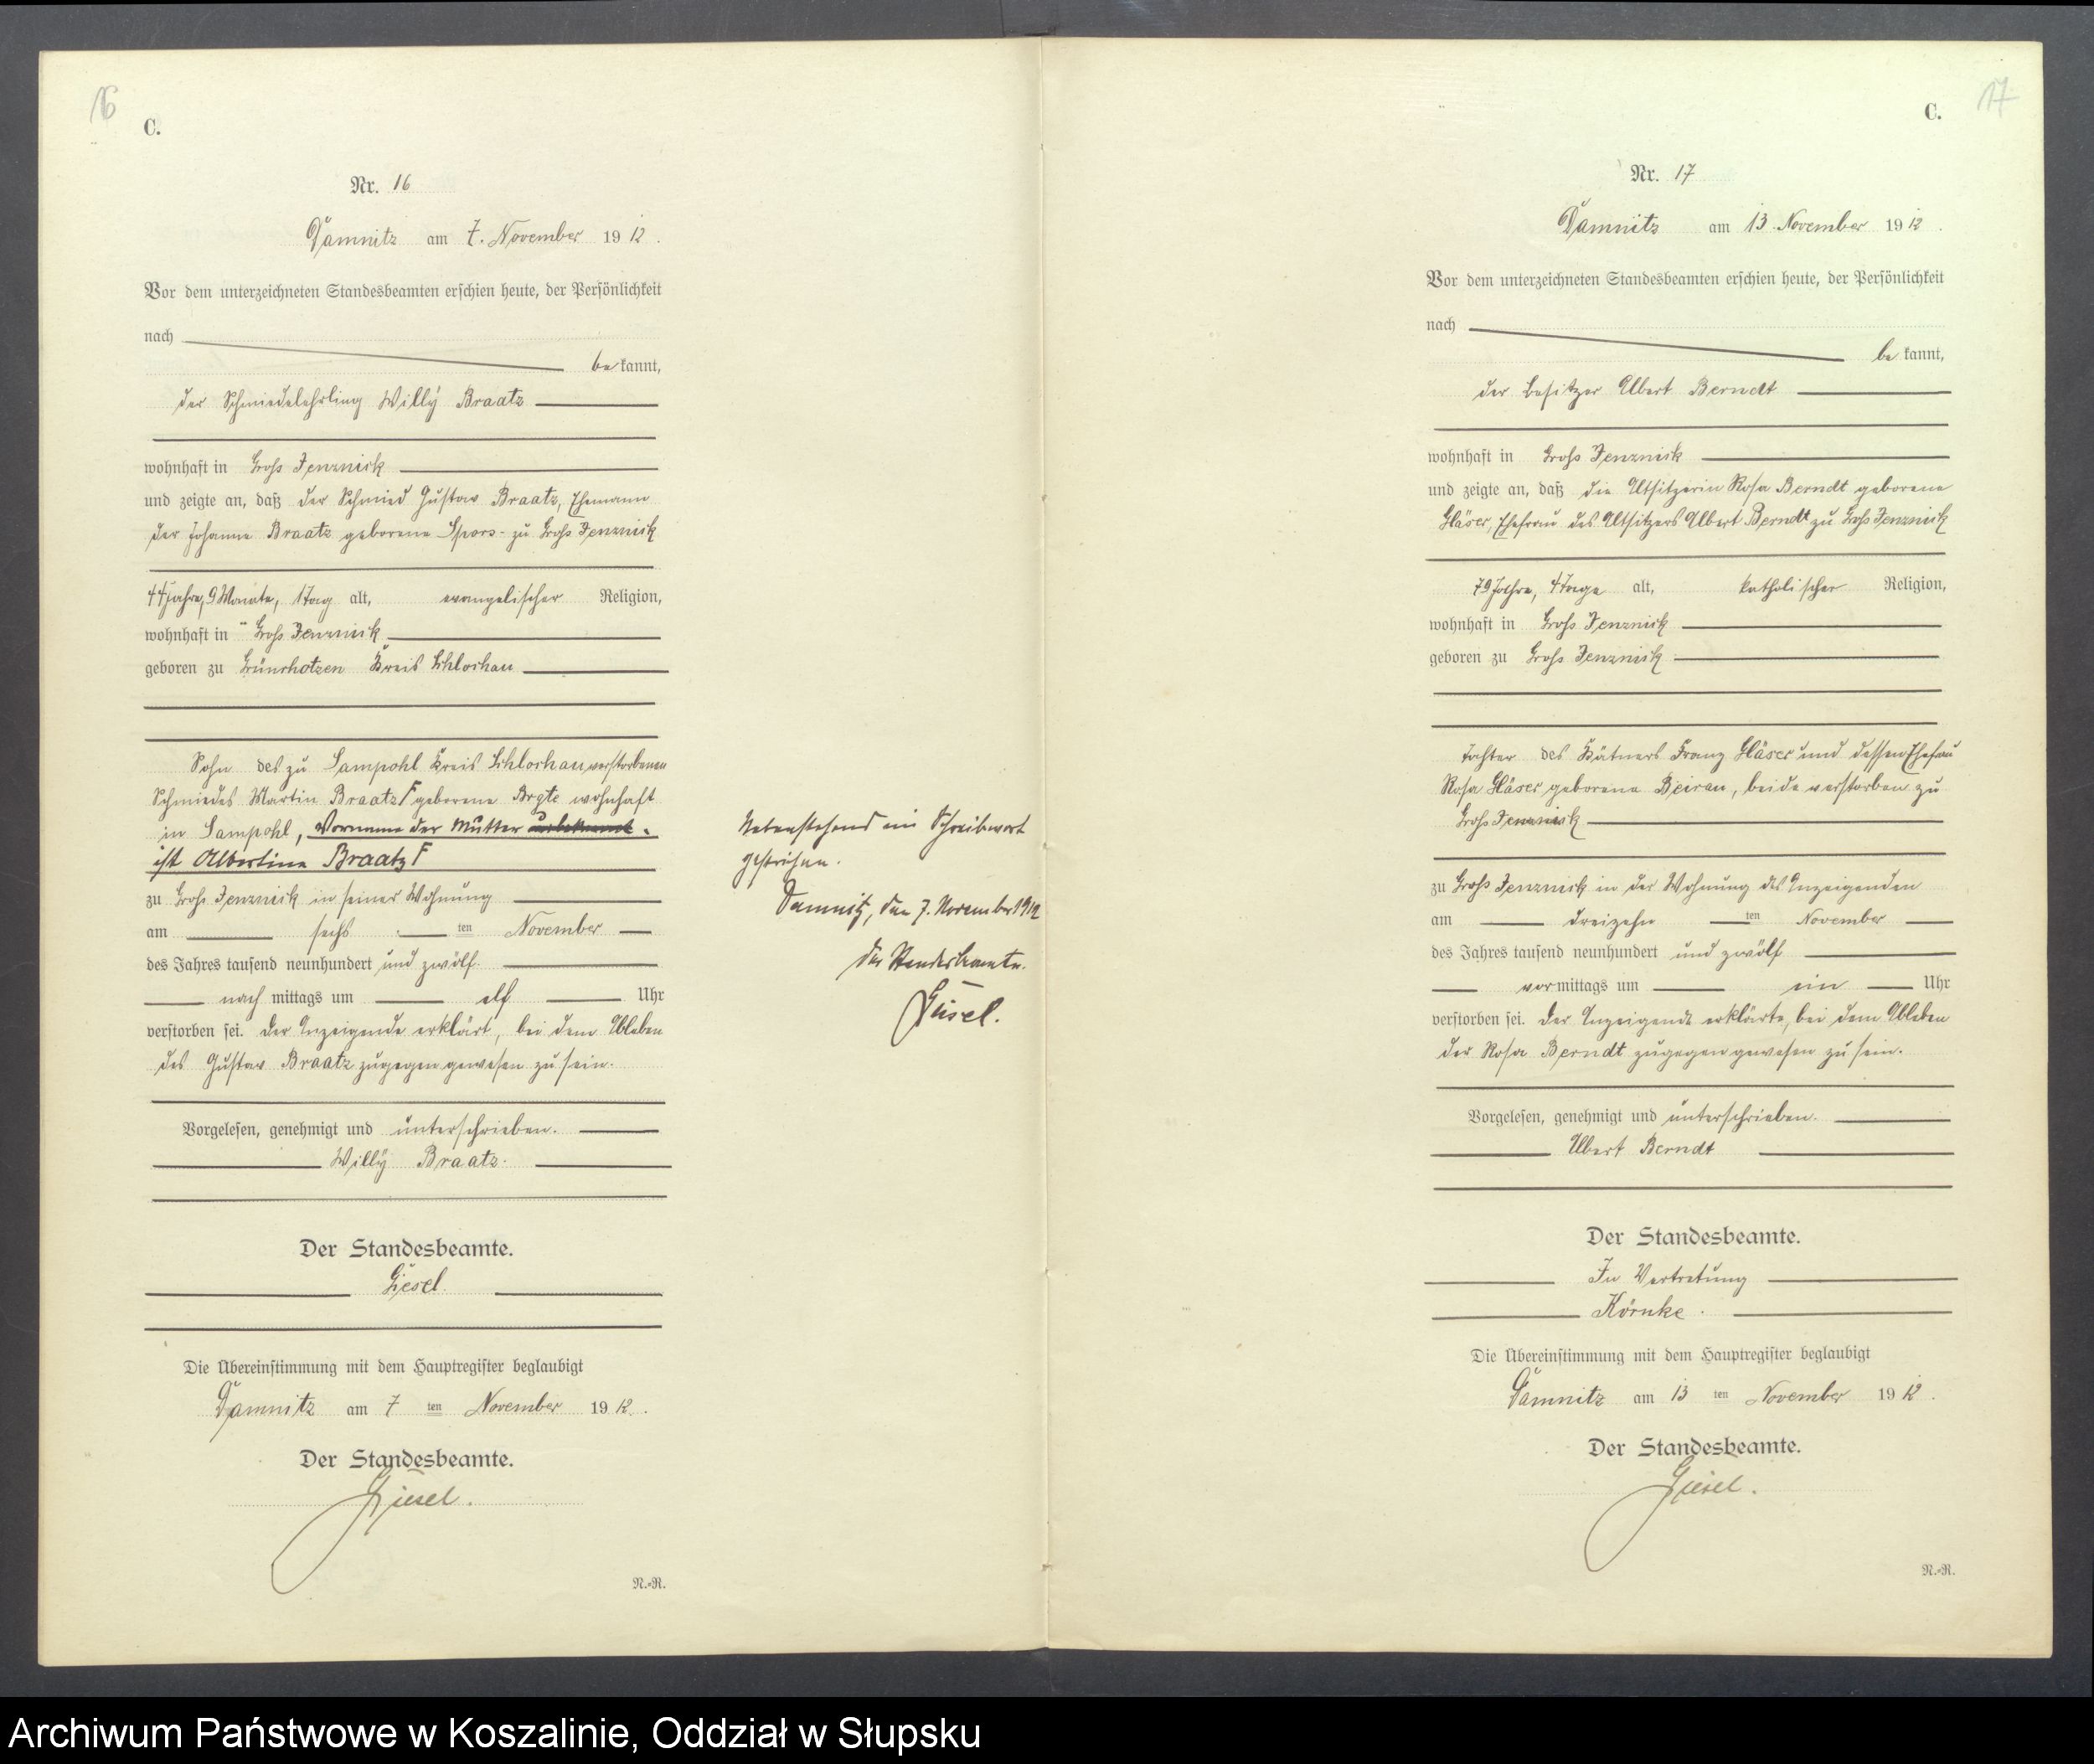 16
C.
Nr. 16
Damnitz am 7. November 1912.
Vor dem unterzeichneten Standesbeamten erschien heute, der Persönlichkeit
nach
be kannt,
der Schmiedelehrling Willy Braatz
wohnhaft in Groß Jenznick
und zeigte an, daß der Schmied Gustav Braatz, Ehemann
der Johanna Braatz geborene Spors- zu Groß Jenznick
44 Jahre, 9 Monate, 1 Tag alt, evangelischer Religion,
wohnhaft in Groß Jenznick
geboren zu Grünchotzen Kreis Schlochau
Sohn des zu Sampohl Kreis Schlochau verstorbenen
Schmiedes Martin Braatz F geborene wohnhaft
in Sampohl, Vorname der Mutter unbekannt.
ist Albertine Braatz F
zu Groß Jenznick in seiner Wohnung
am sechs ten November
des Jahres tausend neunhundert und zwölf
nach mittags um elf Uhr
verstorben sei. Der Anzeigende erklärt, bei dem Ableben
des Gustav Braatz zugegen gewesen zu sein.
Vorgelesen, genehmigt und unterschrieben.
Willy Braatz.
Der Standesbeamte.
Giesel.
Die Übereinstimmung mit dem Hauptregister beglaubigt
Damnitz am 7 ten November 1912.
Der Standesbeamte.
Giesel.
N.=R.
Nebenstehend ein Schreibwort
gestrichen.
Damnitz, den 7. November 1912
Der Standesbeamte.
Giesel.
17
C.
Nr. 17
Damnitz am 13. November 1912.
Vor dem unterzeichneten Standesbeamten erschien heute, der Persönlichkeit
nach
be kannt,
der Besitzer Albert Berndt
wohnhaft in Groß Jenznick
und zeigte an, daß die Altsitzerin Rosa Berndt geborene
Gläser, Ehefrau des Altsitzers Albert Berndt zu Groß Jenznick
79 Jahre, 4 Tage alt, katholischer Religion,
wohnhaft in Groß Jenznick
geboren zu Groß Jenznick
Tochter des Kätners Franz Gläser und dessen Ehefrau
Rosa Gläser geborene, beide verstorben zu
Groß Jenznick
zu Groß Jenznick in der Wohnung des Anzeigenden
am dreizehn ten November
des Jahres tausend neunhundert und zwölf
vor mittags um ein Uhr
verstorben sei. Der Anzeigende erklärte, bei dem Ableben
der Rosa Berndt zugegen gewesen zu sein.
Vorgelesen, genehmigt und unterschrieben.
Albert Berndt
Der Standesbeamte.
In Vertretung
Körnke.
Die Übereinstimmung mit dem Hauptregister beglaubigt
Damnitz am 13 ten November 1912.
Der Standesbeamte.
Giesel.
N.=R.
Archiwum Państwowe w Koszalinie, Oddział w Słupsku